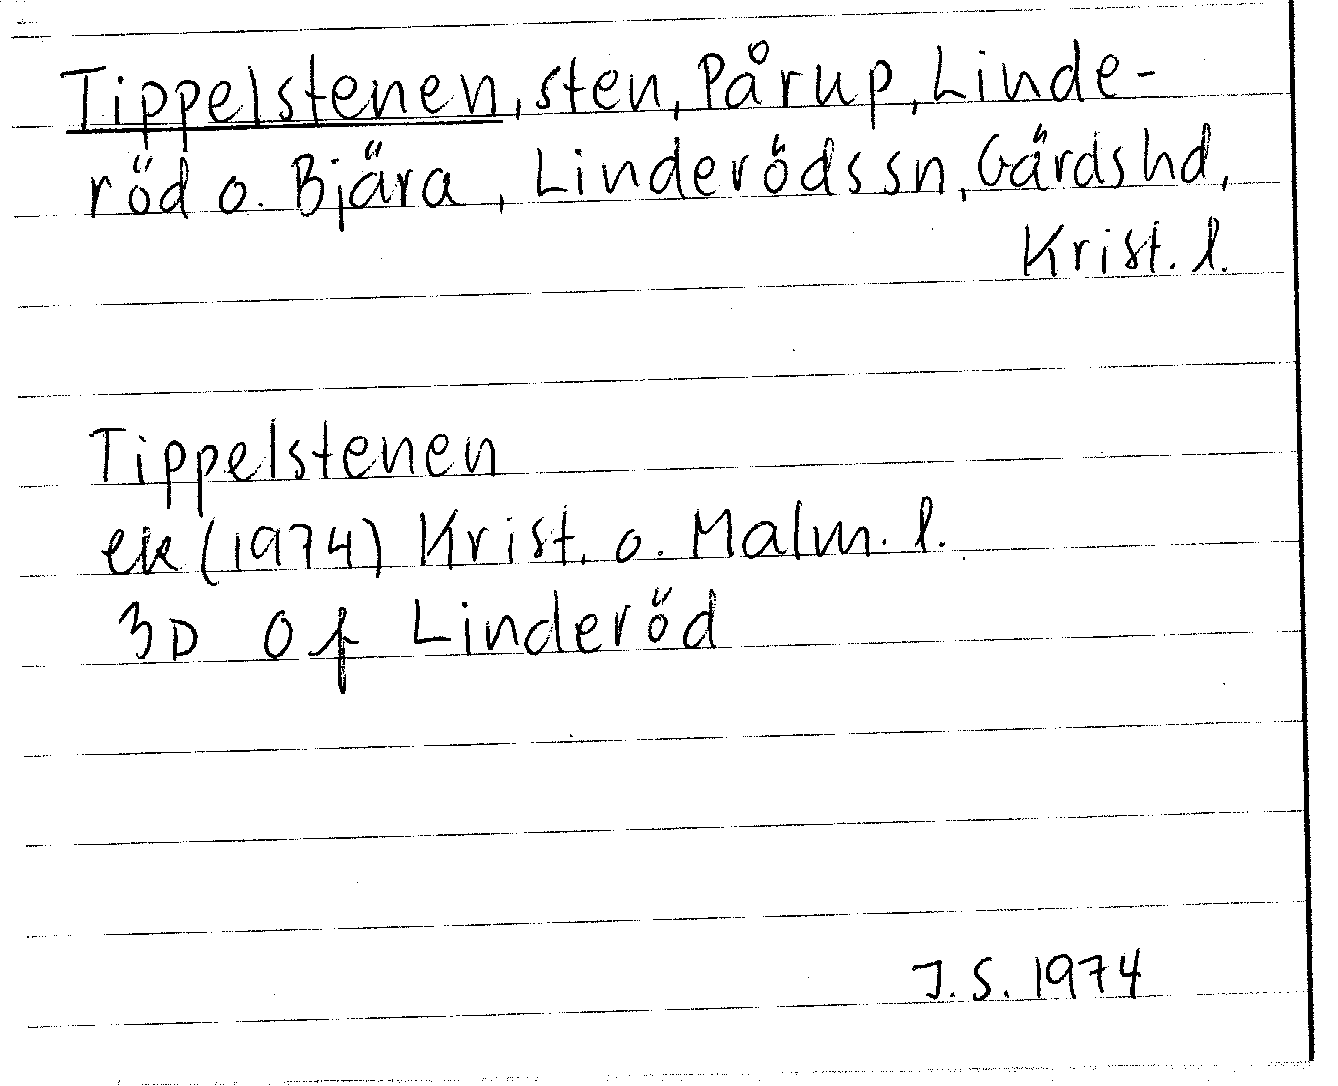 Tippelstenen, sten, Pårup, Linde-
röd o. Bjära, Linderöds sn, Gärds hd,
Krist. l.
Tippelstenen
ek (1974) Krist. o. Malm. l.
3D 0f Linderöd
J.S. 1974